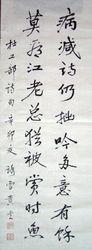 病减诗仍拙吟多意有余
莫看江老总犹被赏时鱼
杜工部诗句辛卯